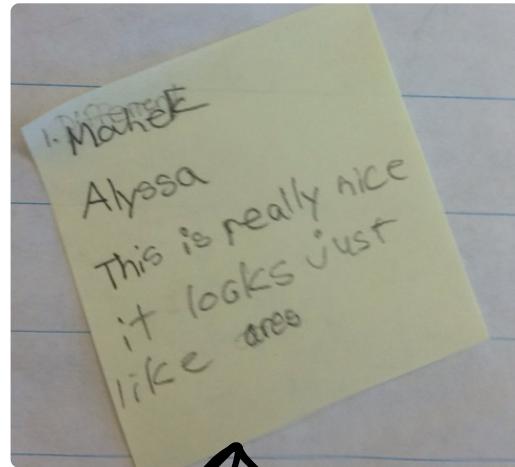 1. Mahek
Alyssa
This is really nice
it looks just
like ares